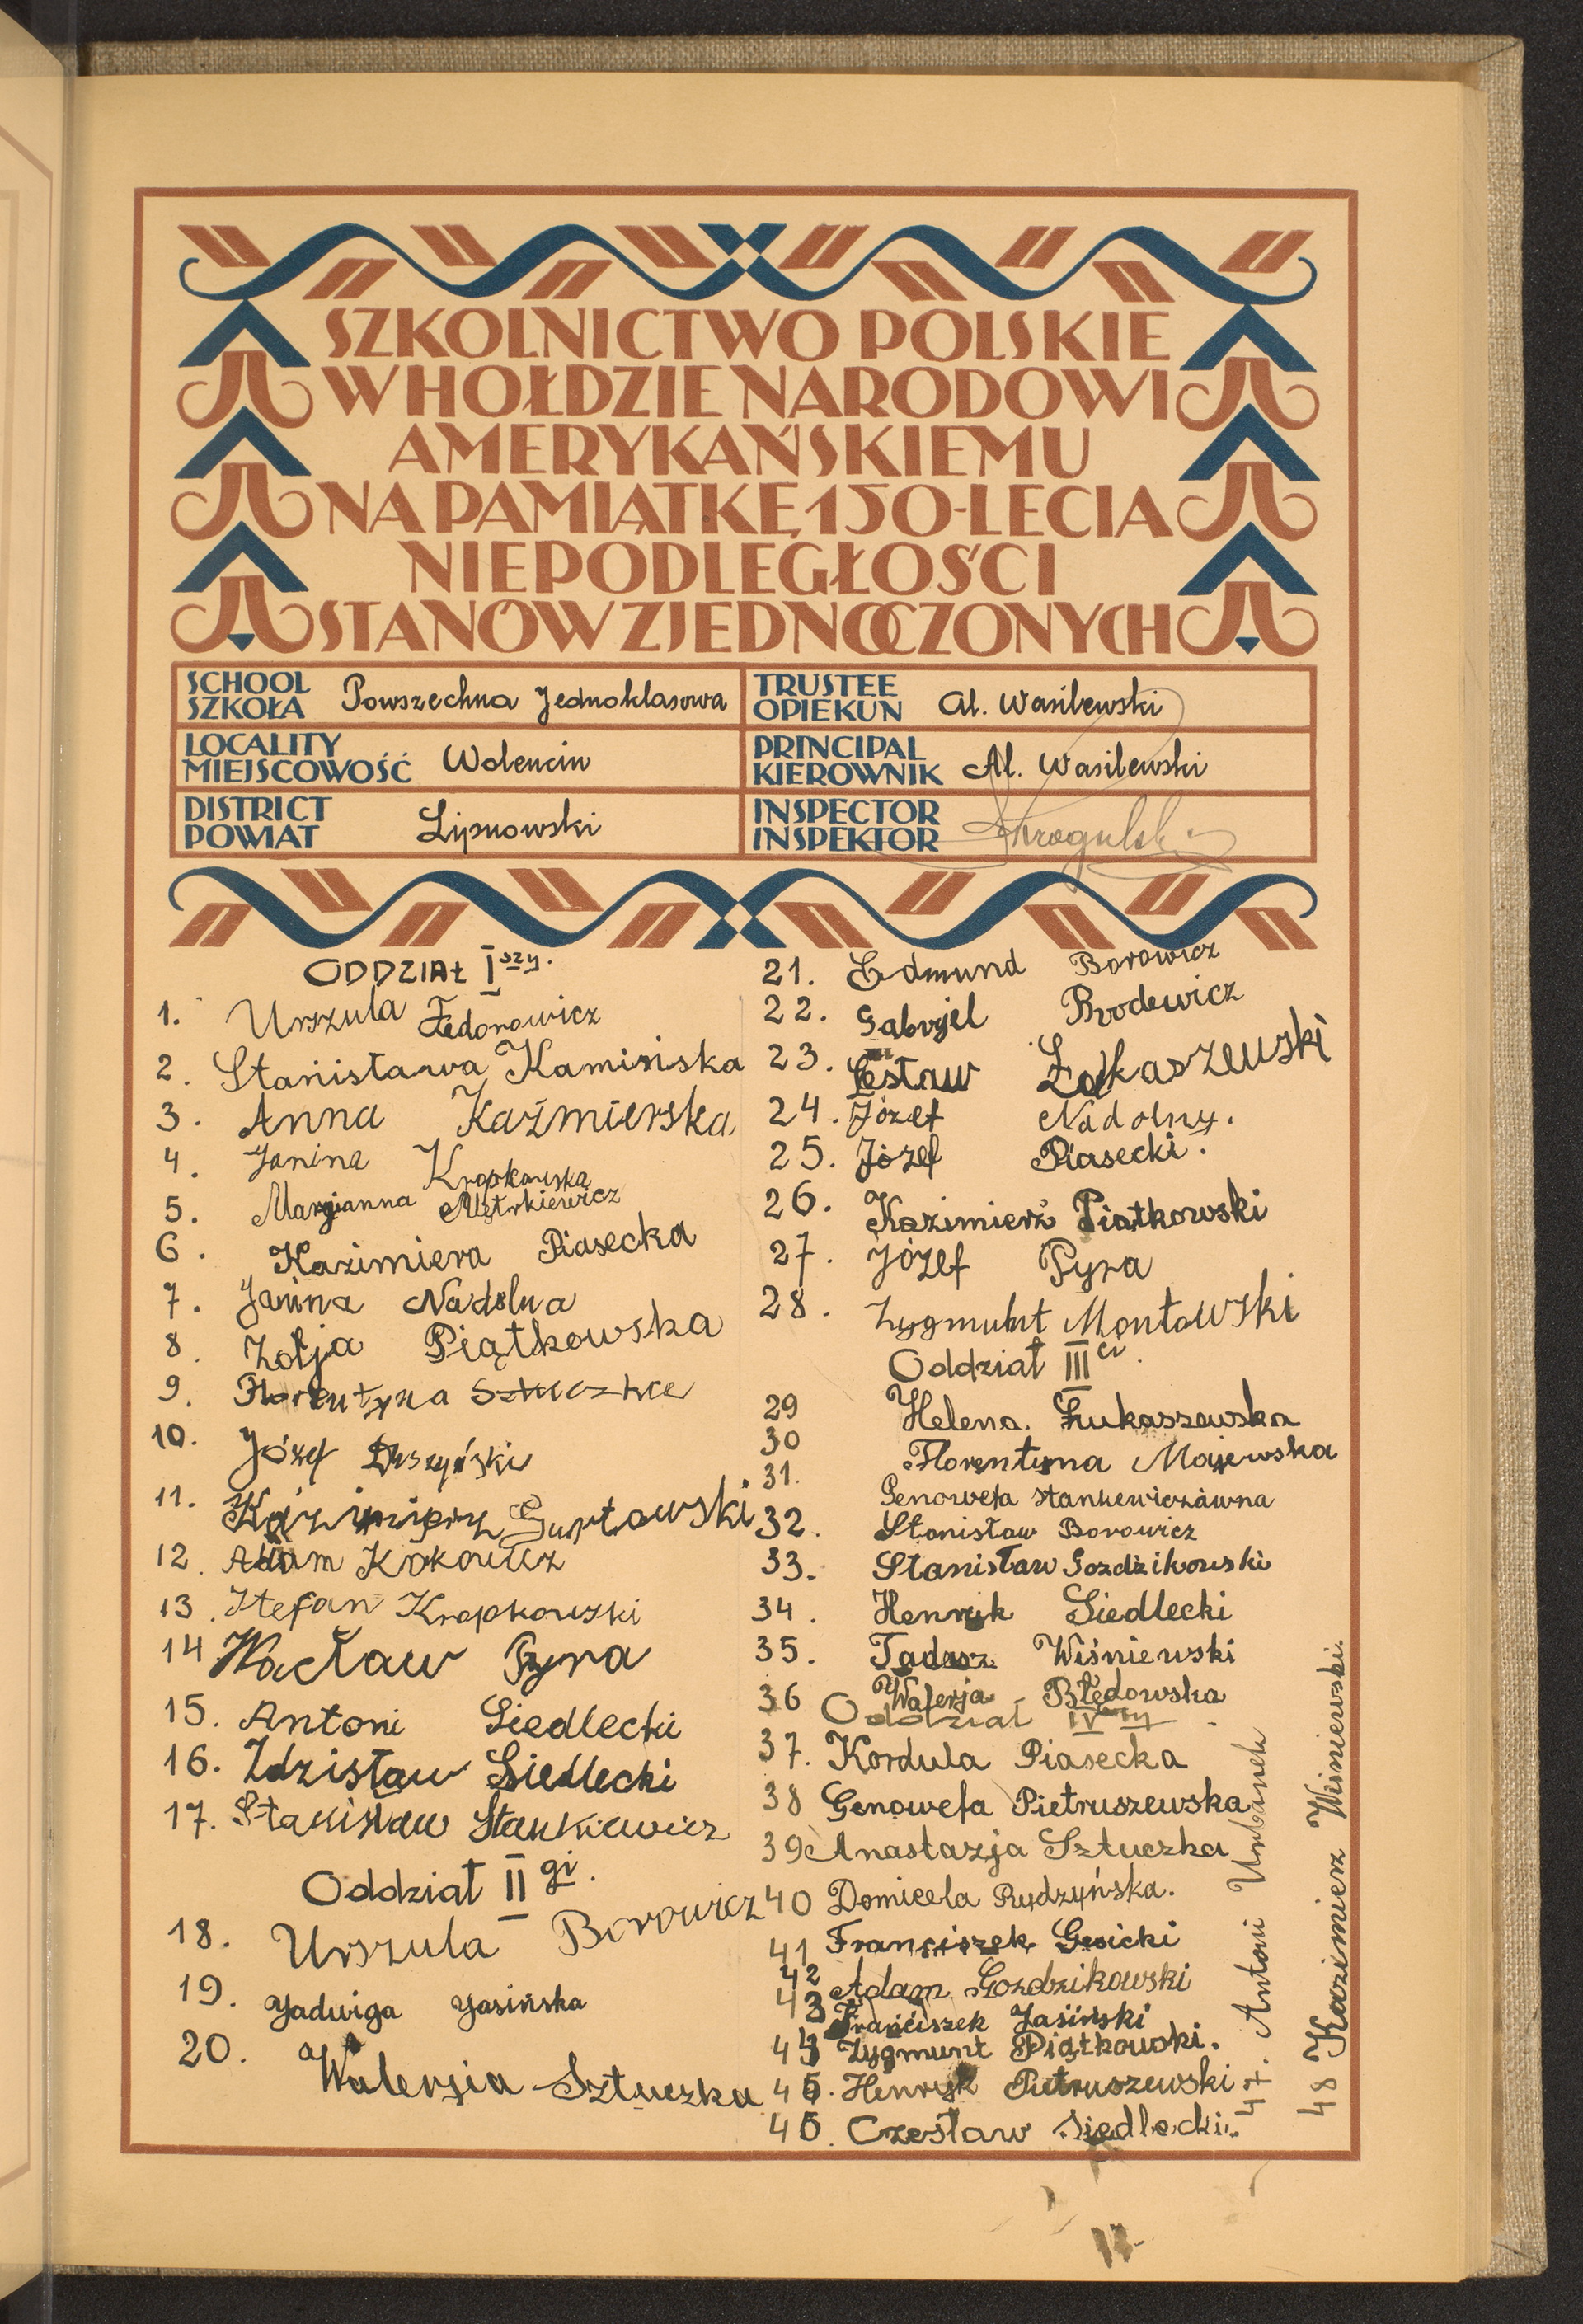 SZKOLNICTWO POLSKIE
W HOŁDZIE NARODOWI
AMERYKAŃSKIEMU
NA PAMIĄTKĘ 150-LECIA
NIEPODLEGŁOŚCI
STANÓW ZJEDNOCZONYCH
SCHOOL
SZKOŁA Powszechna Jednoklasowa
TRUSTEE
OPIEKUN Al. Wasilewski
LOCALITY
MIEJSCOWOŚĆ Wolencin
PRINCIPAL
KIEROWNIK Al. Wasilewski
DISTRICT
POWIAT Lipnowski
INSPECTOR
INSPEKTOR
ODDZIAŁ I szy.
1. Urszula Fedorowicz
2. Stanisława Kamińska
3. Anna Kaźmierska
4. Janina Kropkowska
5. Maryianna Mętrkiewicz
6. Kazimiera Piasecka
7. Janina Nadolna
8. Zofja Piątkowska
9. Florentyna
10. Józef
11. Kazimierz
12. Adam Kokowicz
13. Stefan Kropkowski
14 Wacław Pyra
15. Antoni Siedlecki
16. Zdzisław Siedlecki
17. Stanisław Stankiewicz
Oddział II gi.
18. Urszula Borowicz
19. Jadwiga Jasińska
20. Walerjia Sztuczka
21. Edmund Borowicz
22. Gabryjel Brodewicz
23.
24. Józef Nadolny.
25. Józef Piasecki.
26. Kazimierz Piatkowski
27. Józef Pyra
28. Zygmunt Montowski
Oddział III ci.
29 Helena. Łukaszewska
30 Florentyna Majewska
31. Genowefa Stankewiczówna
32. Stanisław Borowicz
33. Stanisław Gozdżikowski
34. Henryk Siedlecki
35. Tadusz Wiśniewski
36 Walerja Błędowska
Oddział IV ty
37. Kordula Piasecka
38 Genowefa Pietruszewska
39 Anastazja Sztuczka
40 Domicela Rydzyńska.
41 Franciszek Gesicki
42 Adam Gozdzikowski
43 Franciszek Jasiński
44 Zygmunt Piątkowski.
45. Henryk Pietruszewski
46. Czesław Siedlecki.
47. Antoni Urbanek
48 Kazimierz Wiśniewski.